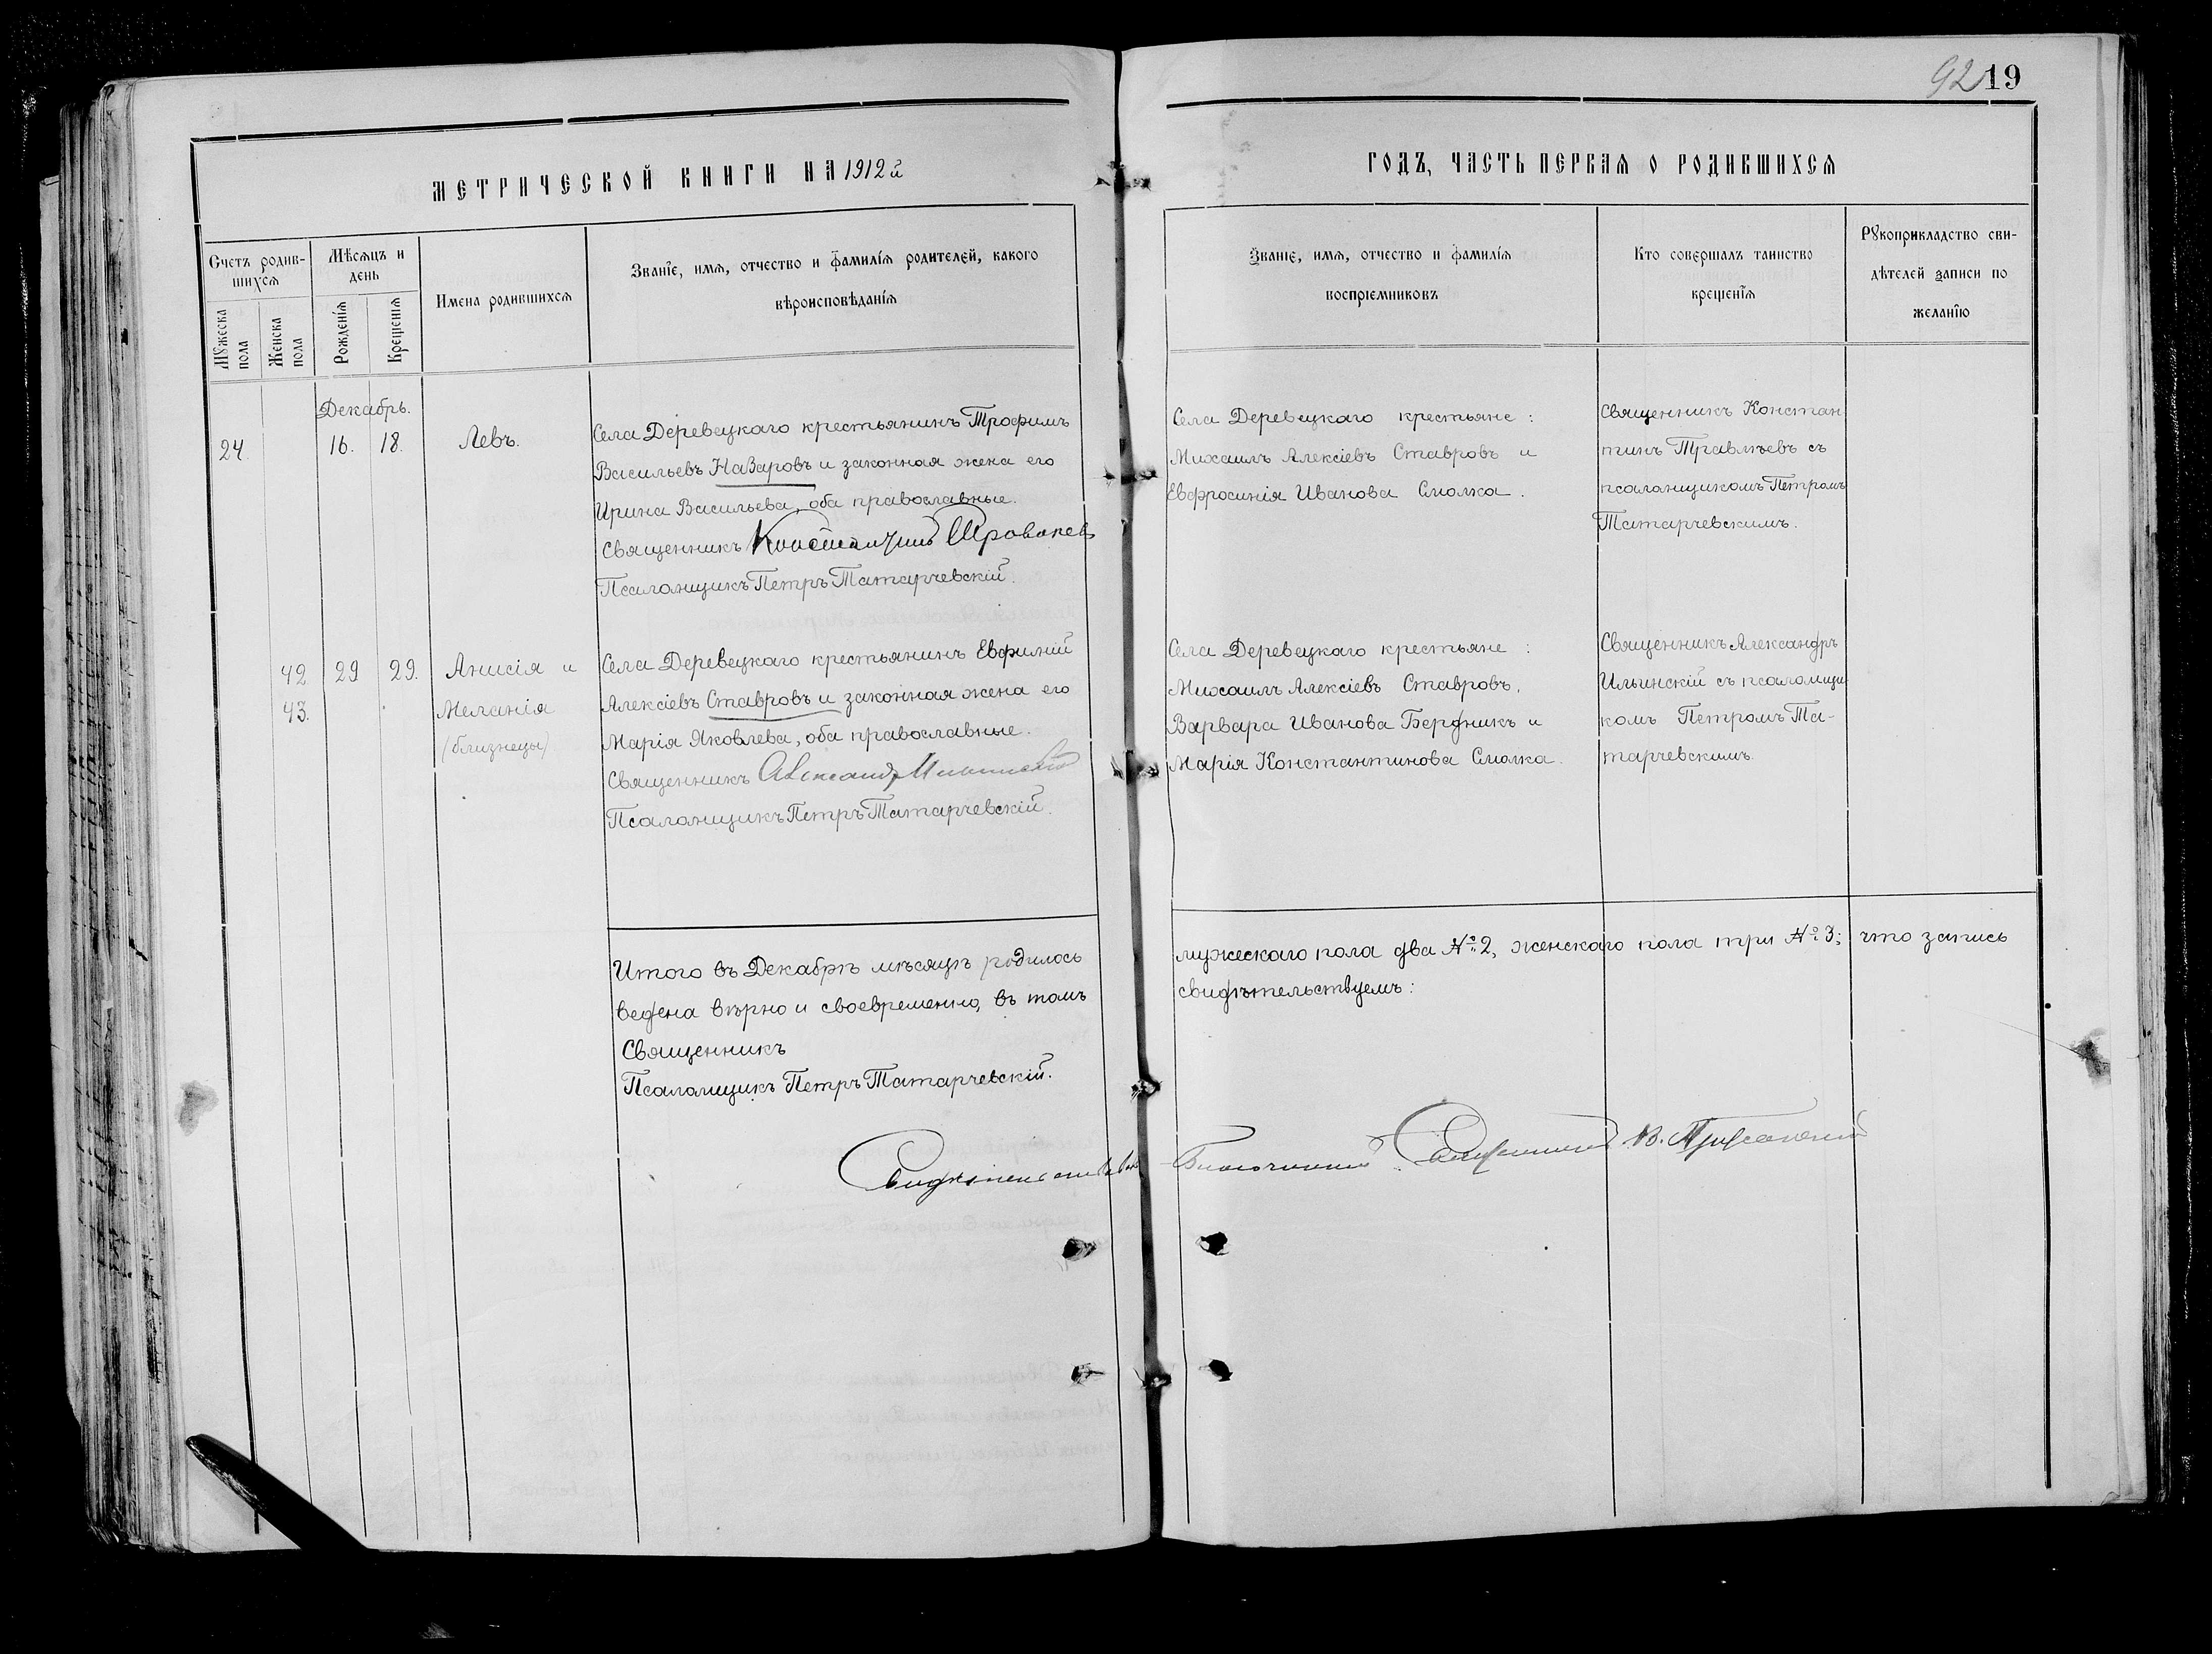 92 19
МЕТРИЧЕСКОЙ КНИГИ НА 1912й
ГОДЪ, ЧАСТЬ ПЕРВАЯ О РОДИВШИХСЯ
Счетъ родив-
шихся
Мужеска пола
Женска пола
Мѣсяцъ и
день
Рожденія
Крещенія
Имена родившихся
Званіе, имя, отчество и фамилія родителей, какого
вѣроисповѣданія
Званіе, имя, отчество и фамилія
воспріемниковъ
Кто совершалъ таинство
крещенія
Рукоприкладство сви-
дѣтелей записи по
желанію
Декабрь.
24. 16. 18. Левъ.
Села Деревецкаго крестьянинъ Трофимъ
Васильевъ Назаровъ и законная жена его
Ирина Васильева, оба православные.
Священникъ Константинъ
Псаломщикъ Петръ Татарчевскій.
Села Деревецкаго крестьяне:
Михаилъ Алексіевъ Ставровъ и
Евфросинія Иванова Смолка.
Священникъ Констан
тинъ съ
псаломщикомъ Петромъ
Татарчевскимъ.
42 29 29. Анисія и
43. Меланія
(близнецы)
Села Деревецкаго крестьянинъ Евфимій
Алексіевъ Ставровъ и законная жена его
Марія Яковлева, оба православные.
Священникъ Александръ Ильинскій
Псаломщикъ Петръ Татарчевскій.
Села Деревецкаго крестьяне:
Михаилъ Алексіевъ Ставровъ,
Варвара Иванова Бердникъ и
Марія Константинова Смолка.
Священникъ Александръ
Ильинскій съ псаломщи-
комъ Петромъ Та-
тарчевскимъ.
Итого въ Декабрѣ мѣсяцѣ родилось мужескаго пола два №2, женскаго пола три №3; что запись
ведена вѣрно и своевременно, въ томъ свидѣтельствуемъ:
Священникъ
Псаломщикъ Петръ Татарчевскій.
Благочинный Священникъ В.